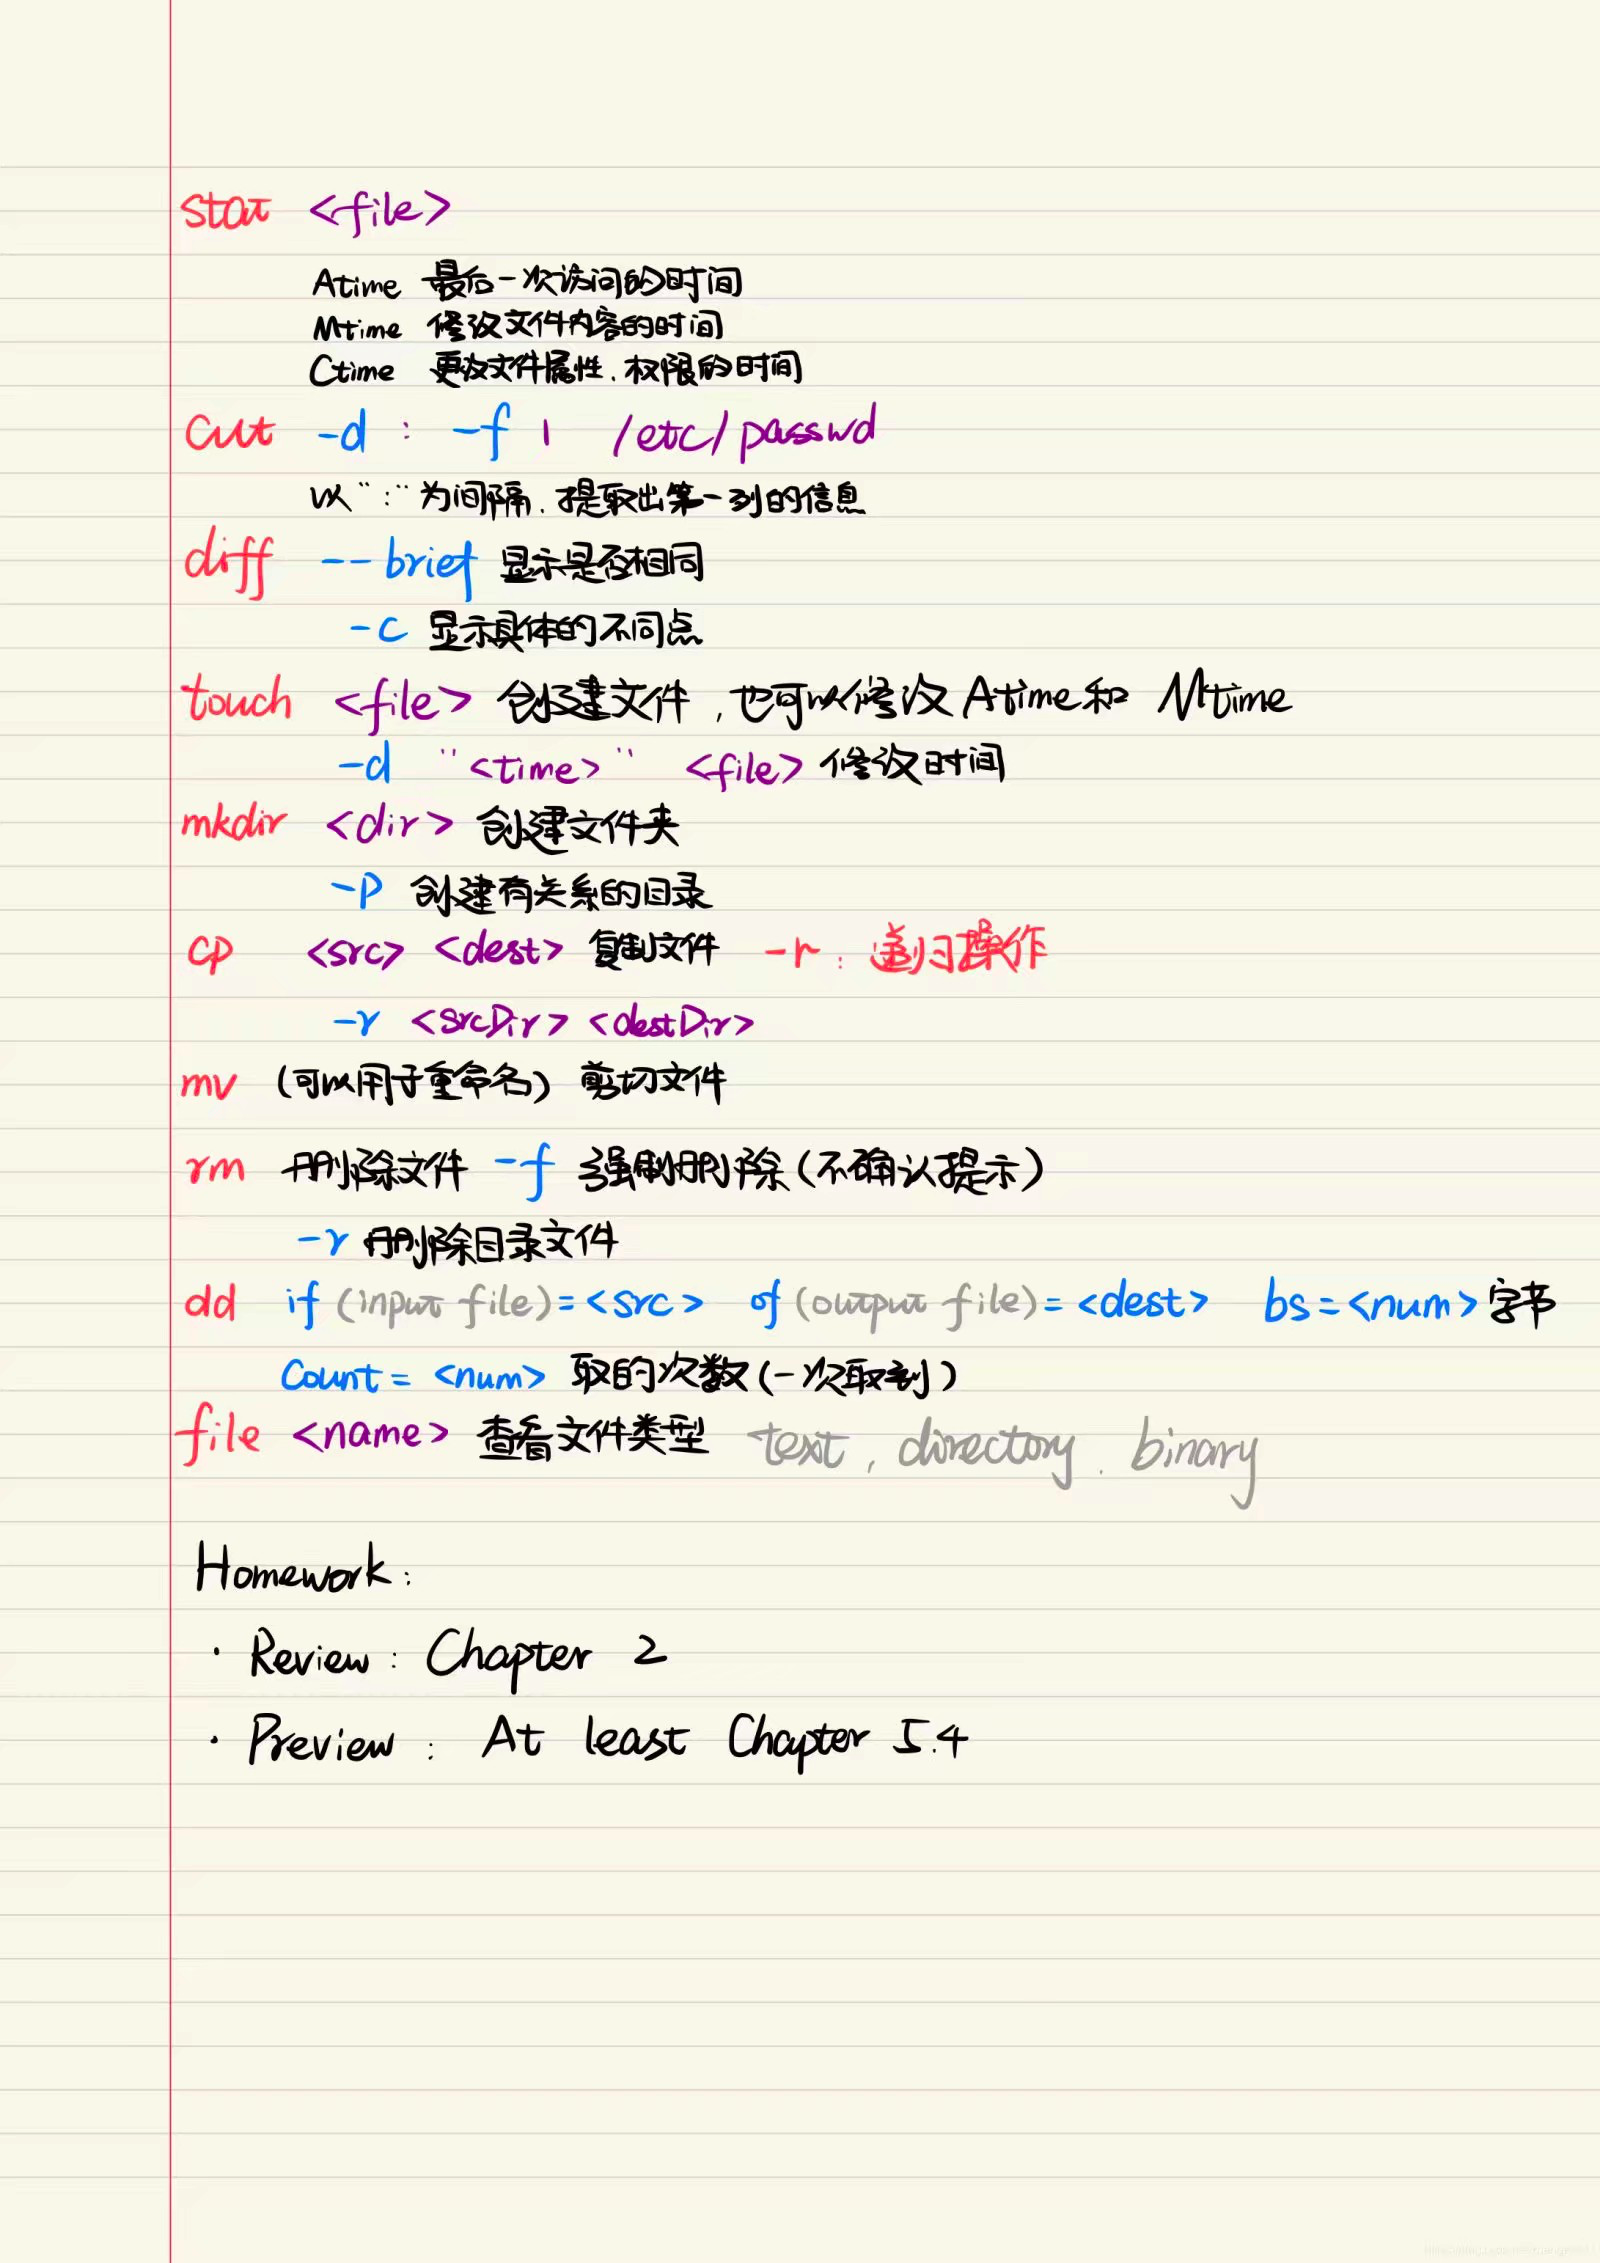 stat <file>
Atime 最后一次访问的时间
Mtime 修改文件内容的时间
Ctime 更改文件属性、权限的时间
cut -d : -f 1 /etc/passwd
以":"为间隔,提取出第一列的信息
diff --brief 显示是否相同
-c 显示具体的不同点
touch <file> 创建文件,也可以修改Atime和 Mtime
-d "<time>" <file> 修改时间
mkdir <dir> 创建文件夹
-P 创建有关系的目录
cp <src> <dest> 复制文件 -r: 递归操作
-r <srcDir> <destDir>
mv (可以用于重命名) 剪切文件
rm 删除文件 -f 强制删除(不确认提示)
-r 删除目录文件
dd if (input file)=<src> of (output file)=<dest> bs=<num>字节
Count=<num> 取的次数(一次取到)
file <name> 查看文件类型 text, directory, binary
Homework:
· Review: Chapter 2
· Preview: At least Chapter 5.4